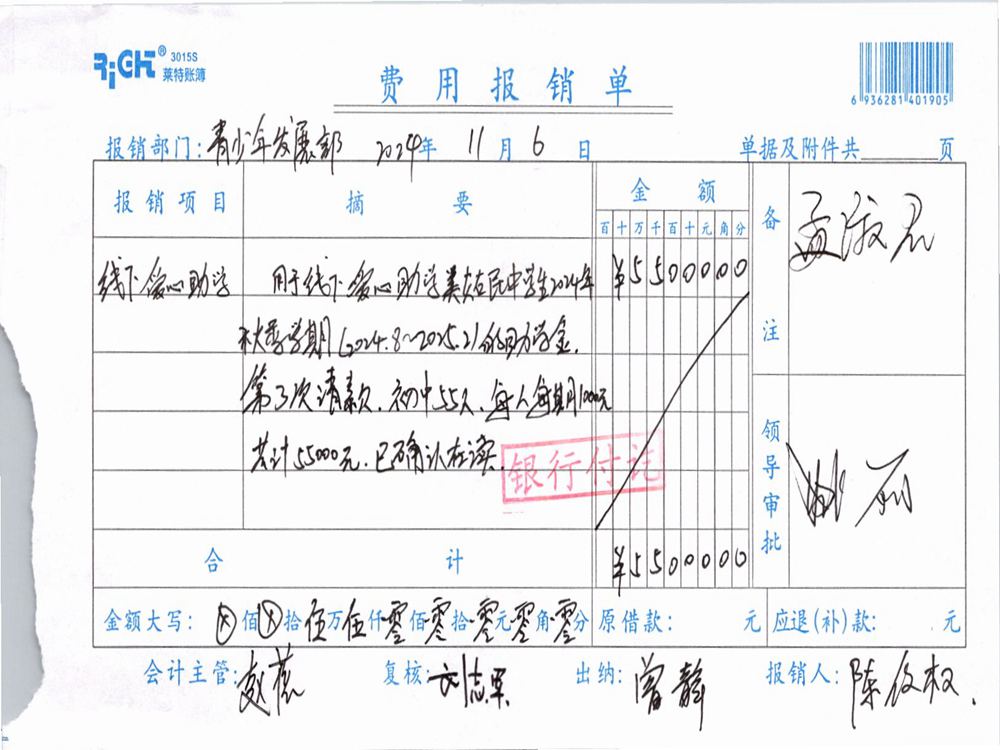 RiGHT® 3015S
莱特账簿
费用报销单
6 936281 401905
报销部门:青少年发展部 2024年 11月 6日 单据及附件共 页
报销项目 摘要 金额 备注
百十万千百十元角分
线下爱心助学 用于线下爱心助学类 在民中学生2024年 ¥5500000
秋季学期(2024.8~2025.2)的助学金.
第3次请款. 初中55人. 每人每期1000元
共计55000元. 已确认在读.
银行付讫
领导审批
合计 ¥5500000
金额大写: ⊗佰⊗拾伍万伍仟零佰零拾零元零角零分 原借款: 元 应退(补)款: 元
会计主管: 复核:刘志军 出纳:曾静 报销人:陈俊权.